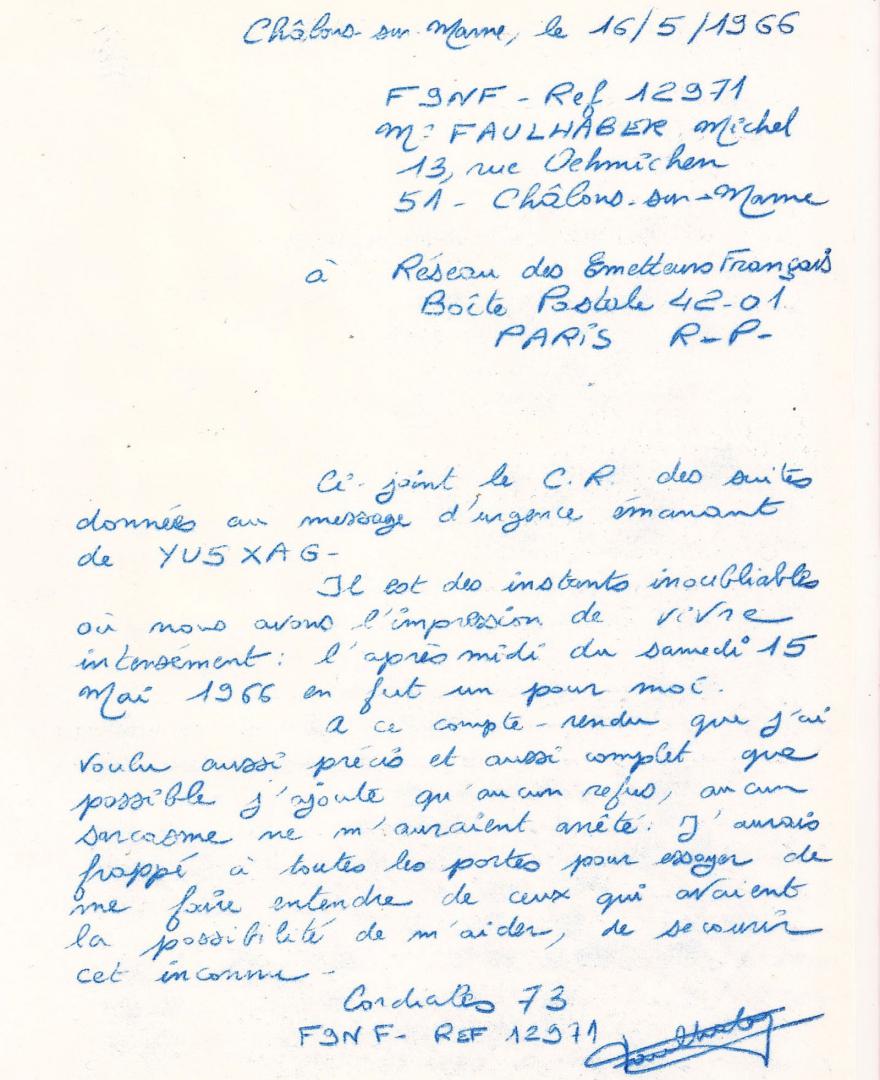 Châlons-sur-Marne, le 16/5/1966
F9NF - Ref 12971
Mr FAULHABER Michel
13, rue Oehmichen
51 - Châlons-sur-Marne
à Réseau des Emetteurs Français
Boîte Postale 42-01
PARIS R-P-
Ci-joint le C.R. des suites
données au message d'urgence émanant
de YU5XAG-
Il est des instants inoubliables
où nous avons l'impression de vivre
intensément : l'après midi du samedi 15
Mai 1966 en fut un pour moi.
A ce compte-rendu que j'ai
voulu aussi précis et aussi complet que
possible j'ajoute qu'aucun refus, aucun
sarcasme ne m'auraient arrêté. J'aurais
frappé à toutes les portes pour essayer de
me faire entendre de ceux qui avaient
la possibilité de m'aider, de secourir
cet inconnu -
Cordiales 73
F9NF- REF 12971